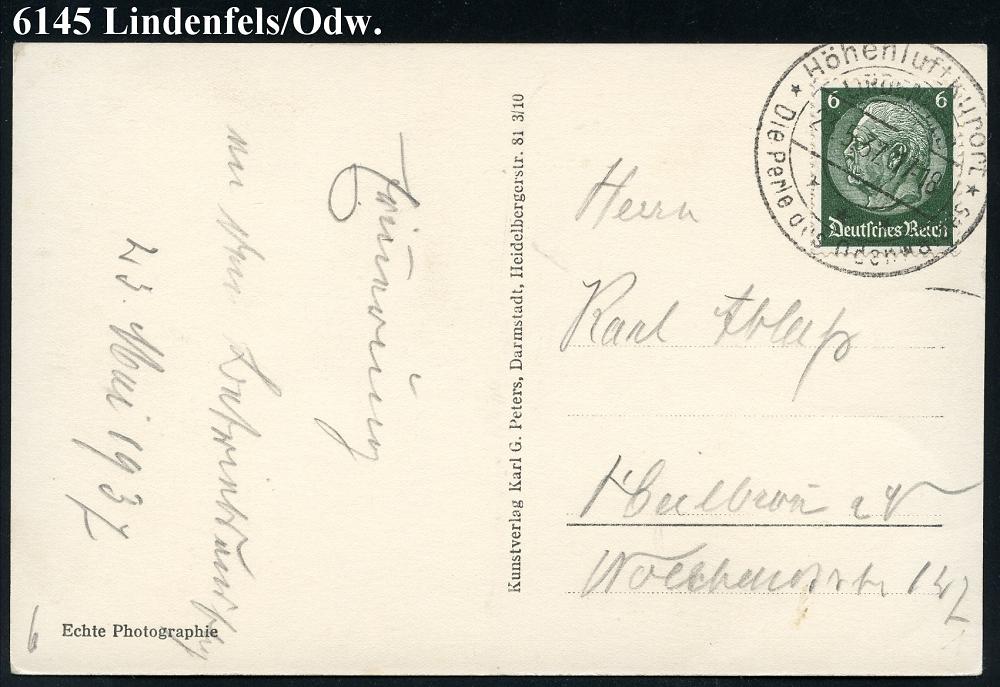 6145 Lindenfels/Odw.
Höhenluftkurort
Die Perle des Odenwaldes
5.37
6 6
Deutsches Reich
Erinnerung
an den
23. Mai 1937
Kunstverlag Karl G. Peters, Darmstadt, Heidelbergerstr. 81 3/10
Herrn
Karl
Heilbronn a/N
Echte Photographie